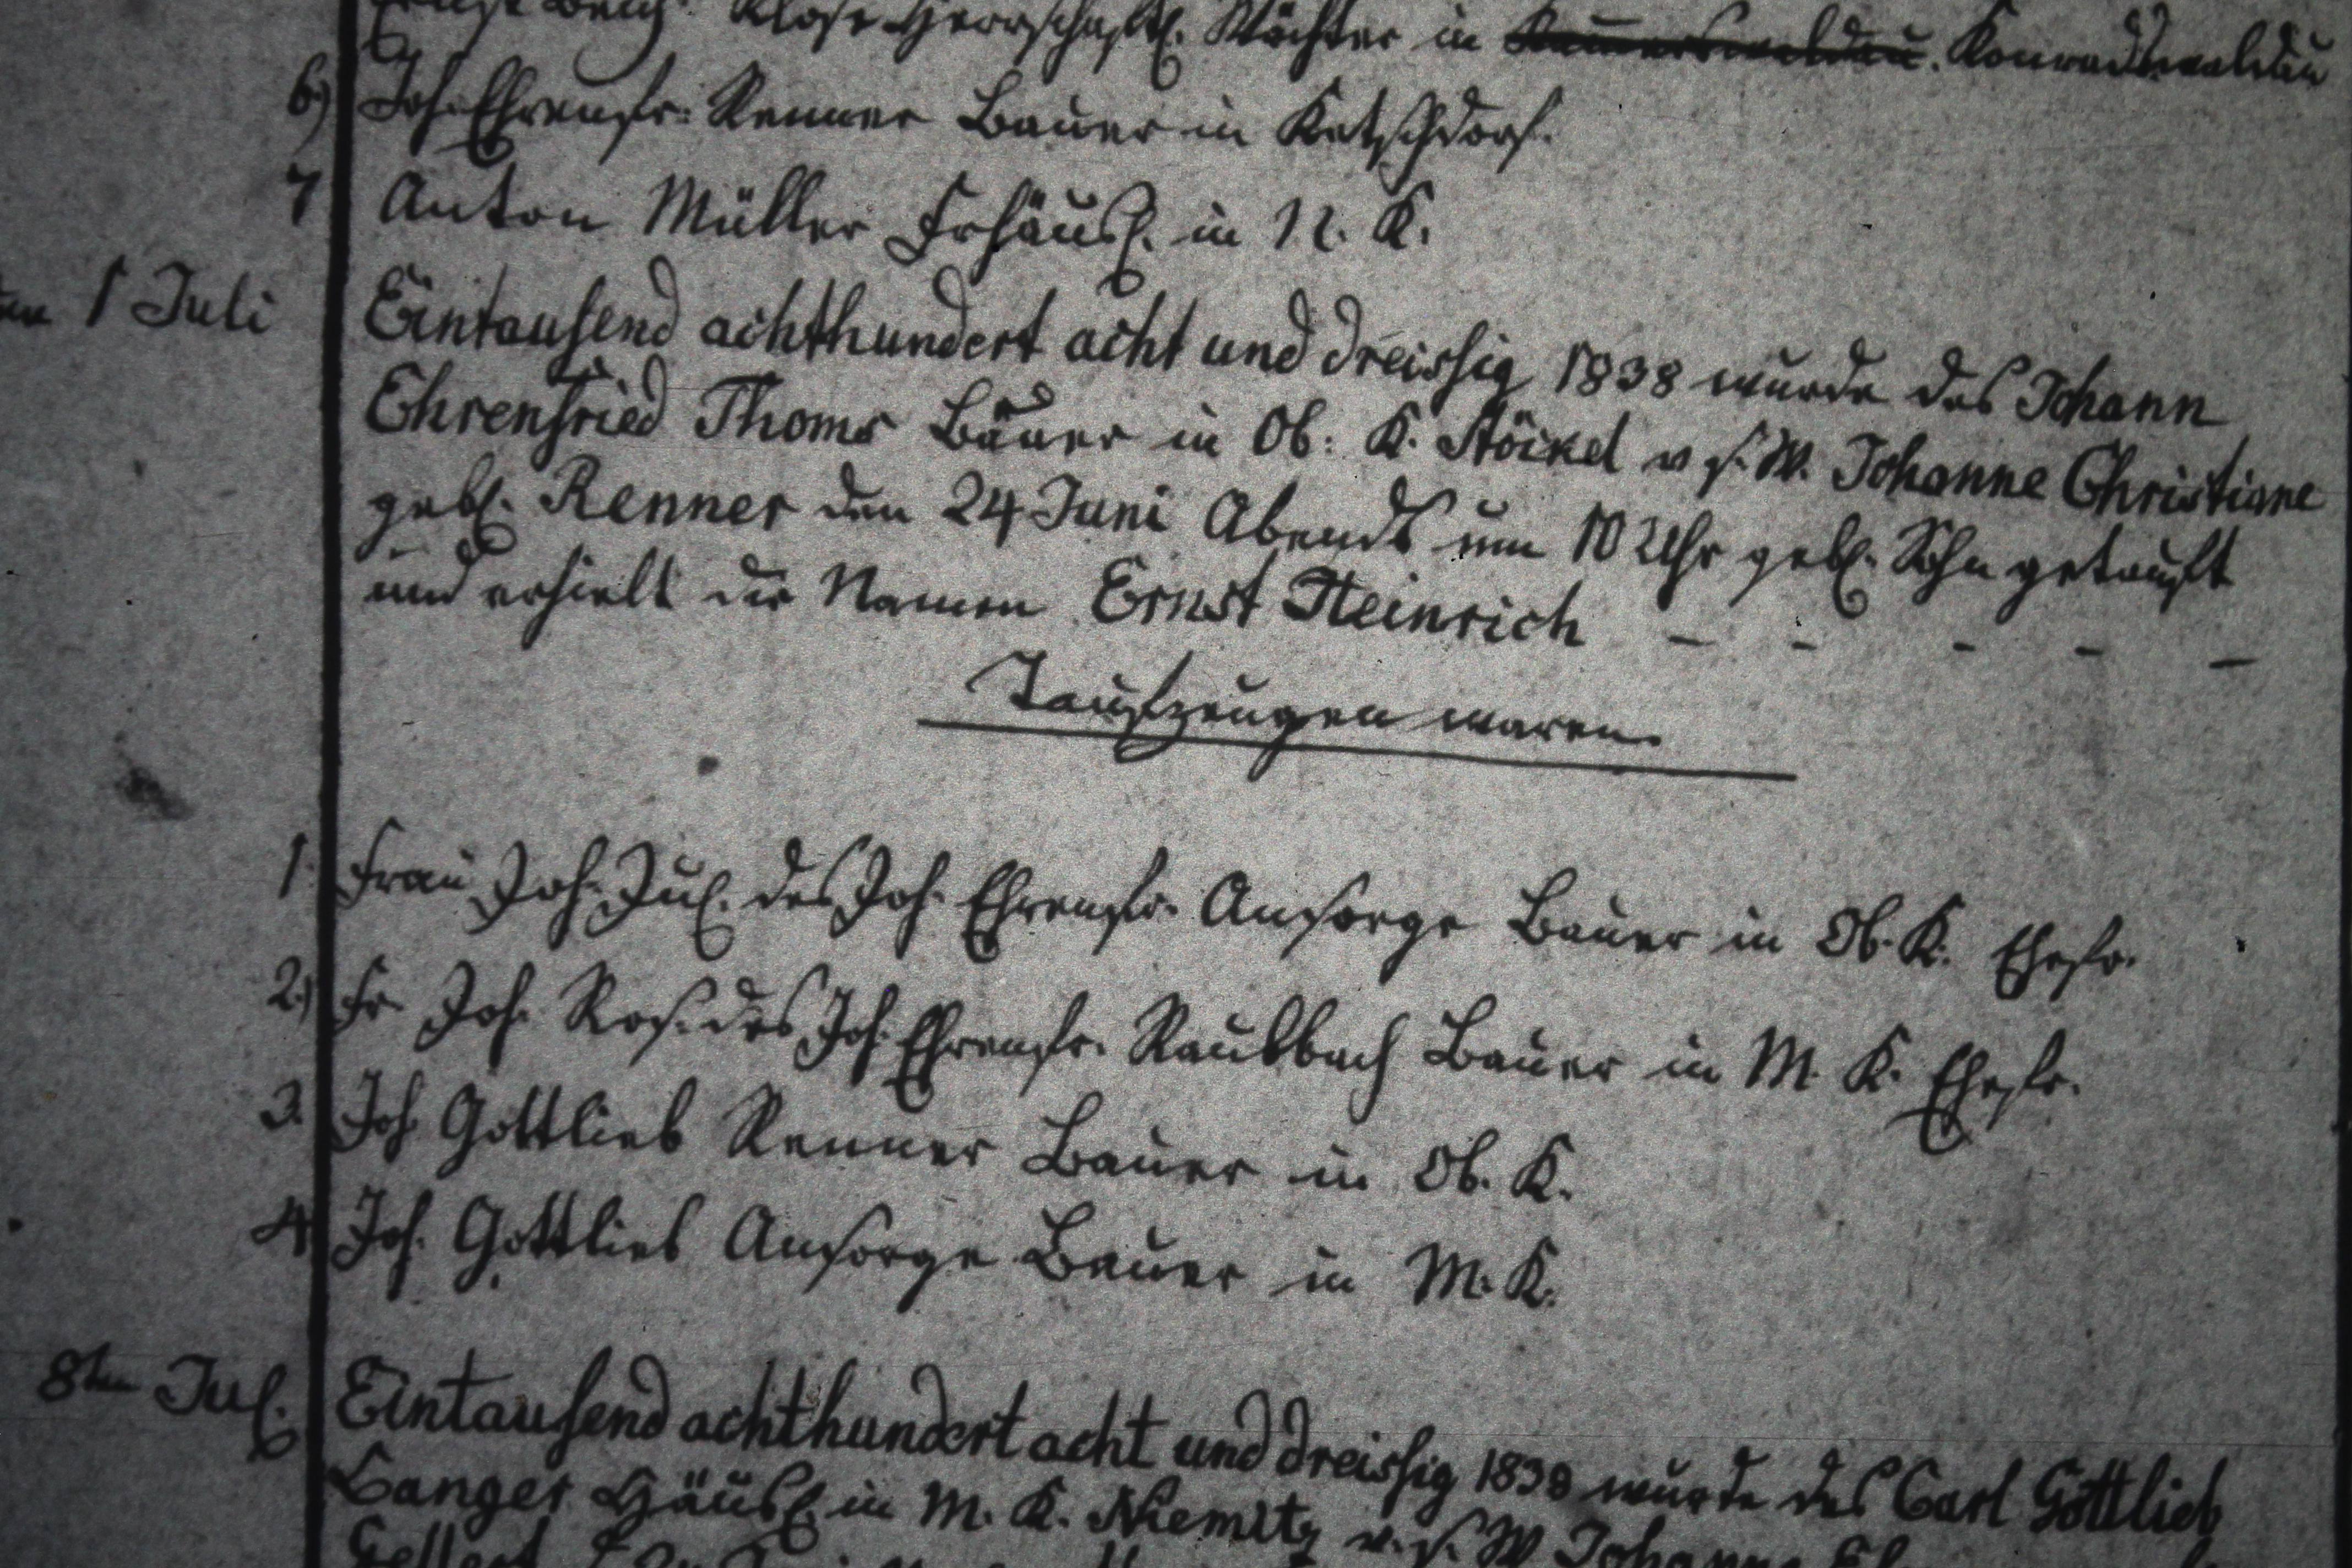 Klose Herrschaftl. Wächter in Konradswaldau
6) Joh. Ehrenfr. Renner Bauer in Ketschdorf.
7 Anton Müller Frhäusl. in N. K.
1 Juli Eintausend achthundert acht und dreissig 1838 wurde des Johann
Ehrenfried Thoms Bauer in Ob: K. Stöckel v s. W. Johanne Christiane
gebl. Renner den 24 Juni Abends um 10 Uhr gebl. Sohn getauft
und erhielt die Namen Ernst Heinrich - - - - -
Taufzeugen waren
1. Frau Joh. Jul. des Joh. Ehrenfr. Ansorge Bauer in Ob. K. Ehefr.
2.) Fr. Joh. Ros. des Joh. Ehrenfr. Raulbach Bauer in M. K. Ehefr.
3. Joh. Gottlieb Renner Bauer in Ob. K.
4. Joh. Gottlieb Ansorge Bauer in M. K.
8ten Jul. Eintausend achthundert acht und dreissig 1838 wurde des Carl Gottlieb
Langer Häusl. in M. K. Niemitz v. s. W Johanne